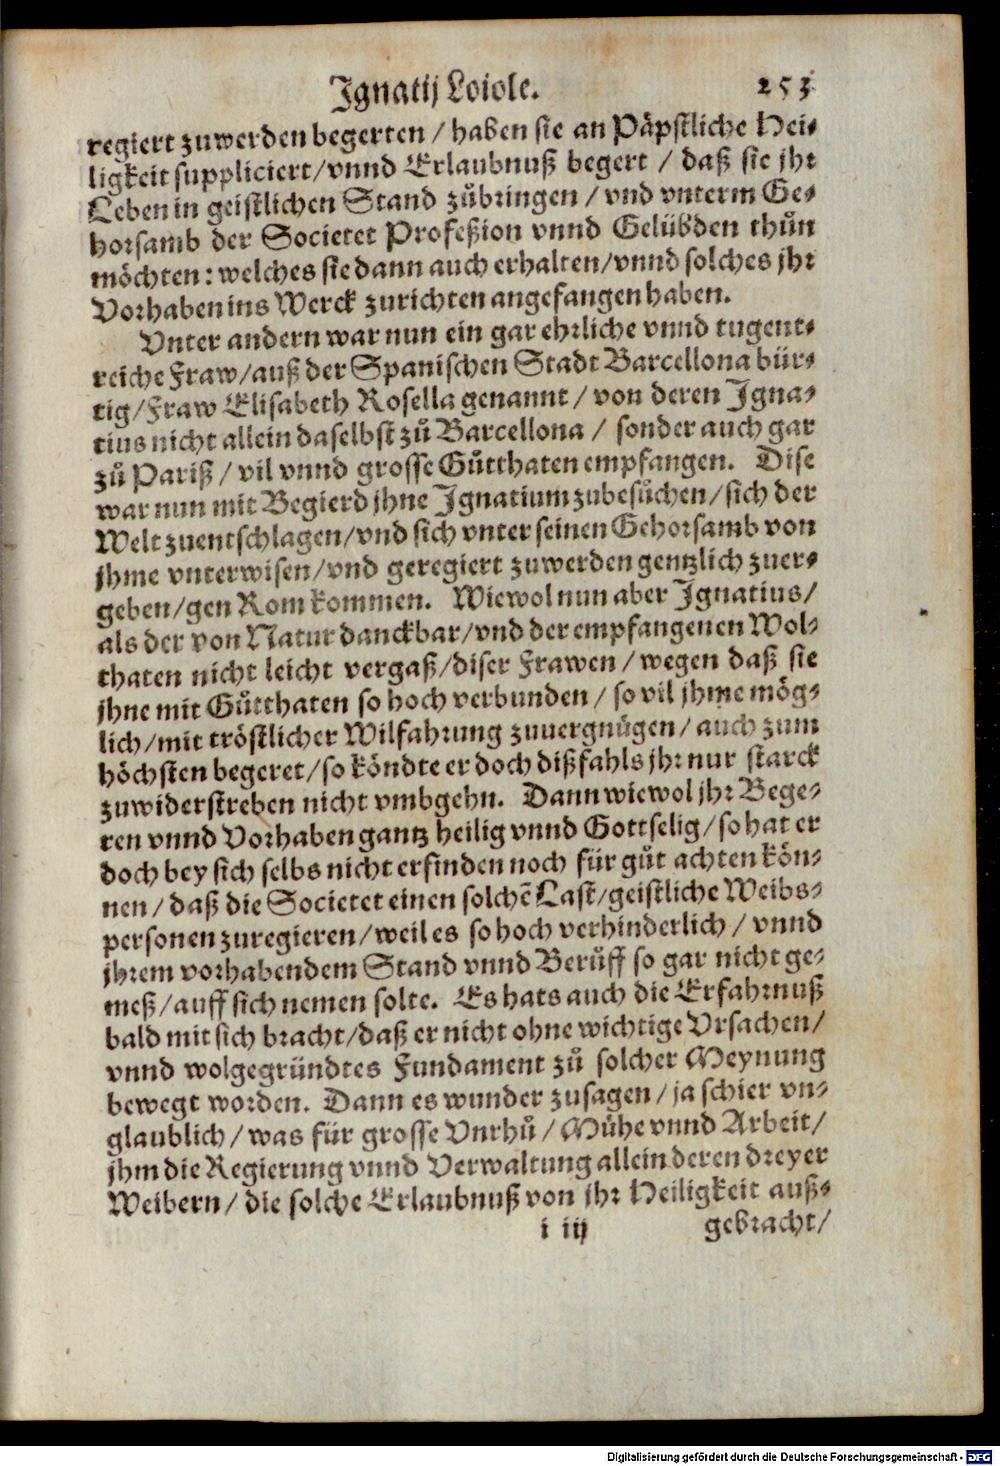 Ignatij Loiole. 253
regiert zuwerden begerten / haben sie an Päpstliche Hei-
ligkeit suppliciert/vnnd Erlaubnuß begert / daß sie jhr
Leben in geistlichen Stand zůbringen / vnd vnterm Ge-
horsamb der Societet Profeßion vnnd Gelübden thůn
möchten: welches sie dann auch erhalten/vnnd solches jhr
Vorhaben ins Werck zurichten angefangen haben.
Vnter andern war nun ein gar ehrliche vnnd tugent-
reiche Fraw/auß der Spanischen Stadt Barcellona bür-
tig/Fraw Elisabeth Rosella genannt / von deren Igna-
tius nicht allein daselbst zů Barcellona / sonder auch gar
zů Pariß / vil vnnd grosse Gůtthaten empfangen. Dise
war nun mit Begierd jhne Ignatium zubesůchen/sich der
Welt zuentschlagen/vnd sich vnter seinen Gehorsamb von
jhme vnterwisen/vnd geregiert zuwerden gentzlich zuer-
geben/gen Rom kommen. Wiewol nun aber Ignatius/
als der von Natur danckbar/vnd der empfangenen Wol-
thaten nicht leicht vergaß/diser Frawen / wegen daß sie
jhne mit Gůtthaten so hoch verbunden / so vil jhme mög-
lich/mit tröstlicher Wilfahrung zuuergnügen / auch zum
höchsten begeret/so köndte er doch dißfahls jhr nur starck
zuwiderstreben nicht vmbgehn. Dann wiewol jhr Bege-
ren vnnd Vorhaben gantz heilig vnnd Gottselig/so hat er
doch bey sich selbs nicht erfinden noch für gůt achten kön-
nen / daß die Societet einen solchẽ Last/geistliche Weibs-
personen zuregieren/weil es so hoch verhinderlich / vnnd
jhrem vorhabendem Stand vnnd Berůff so gar nicht ge-
meß/auff sich nemen solte. Es hats auch die Erfahrnuß
bald mit sich bracht/daß er nicht ohne wichtige Vrsachen/
vnnd wolgegründtes Fundament zů solcher Meynung
bewegt worden. Dann es wunder zusagen / ja schier vn-
glaublich / was für grosse Vnrhů / Můhe vnnd Arbeit/
jhm die Regierung vnnd Verwaltung allein deren dreyer
Weibern / die solche Erlaubnuß von jhr Heiligkeit auß-
i iij gebracht/
Digitalisierung gefördert durch die Deutsche Forschungsgemeinschaft - DFG